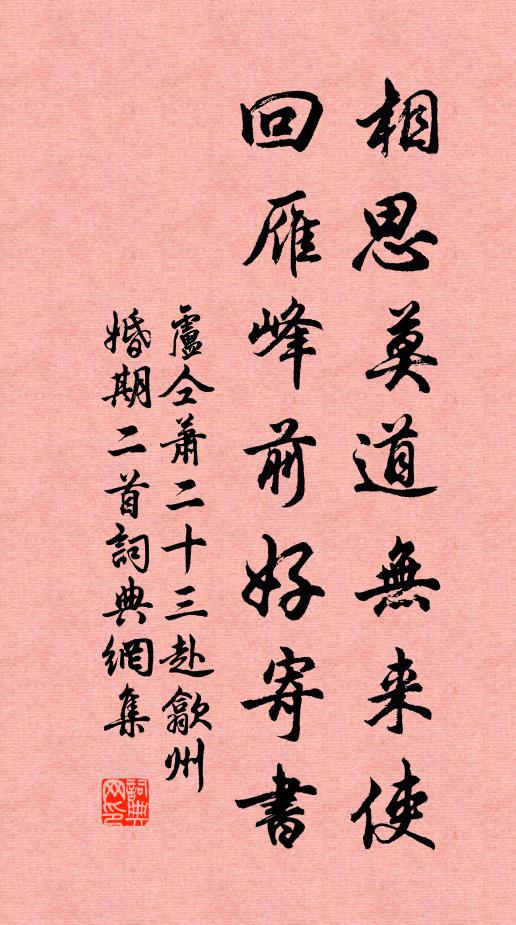 相思莫道無来使
回雁峰前好寄書
盧仝蕭二十三赴歙州
婚期二首詞典網集
詞典
网印